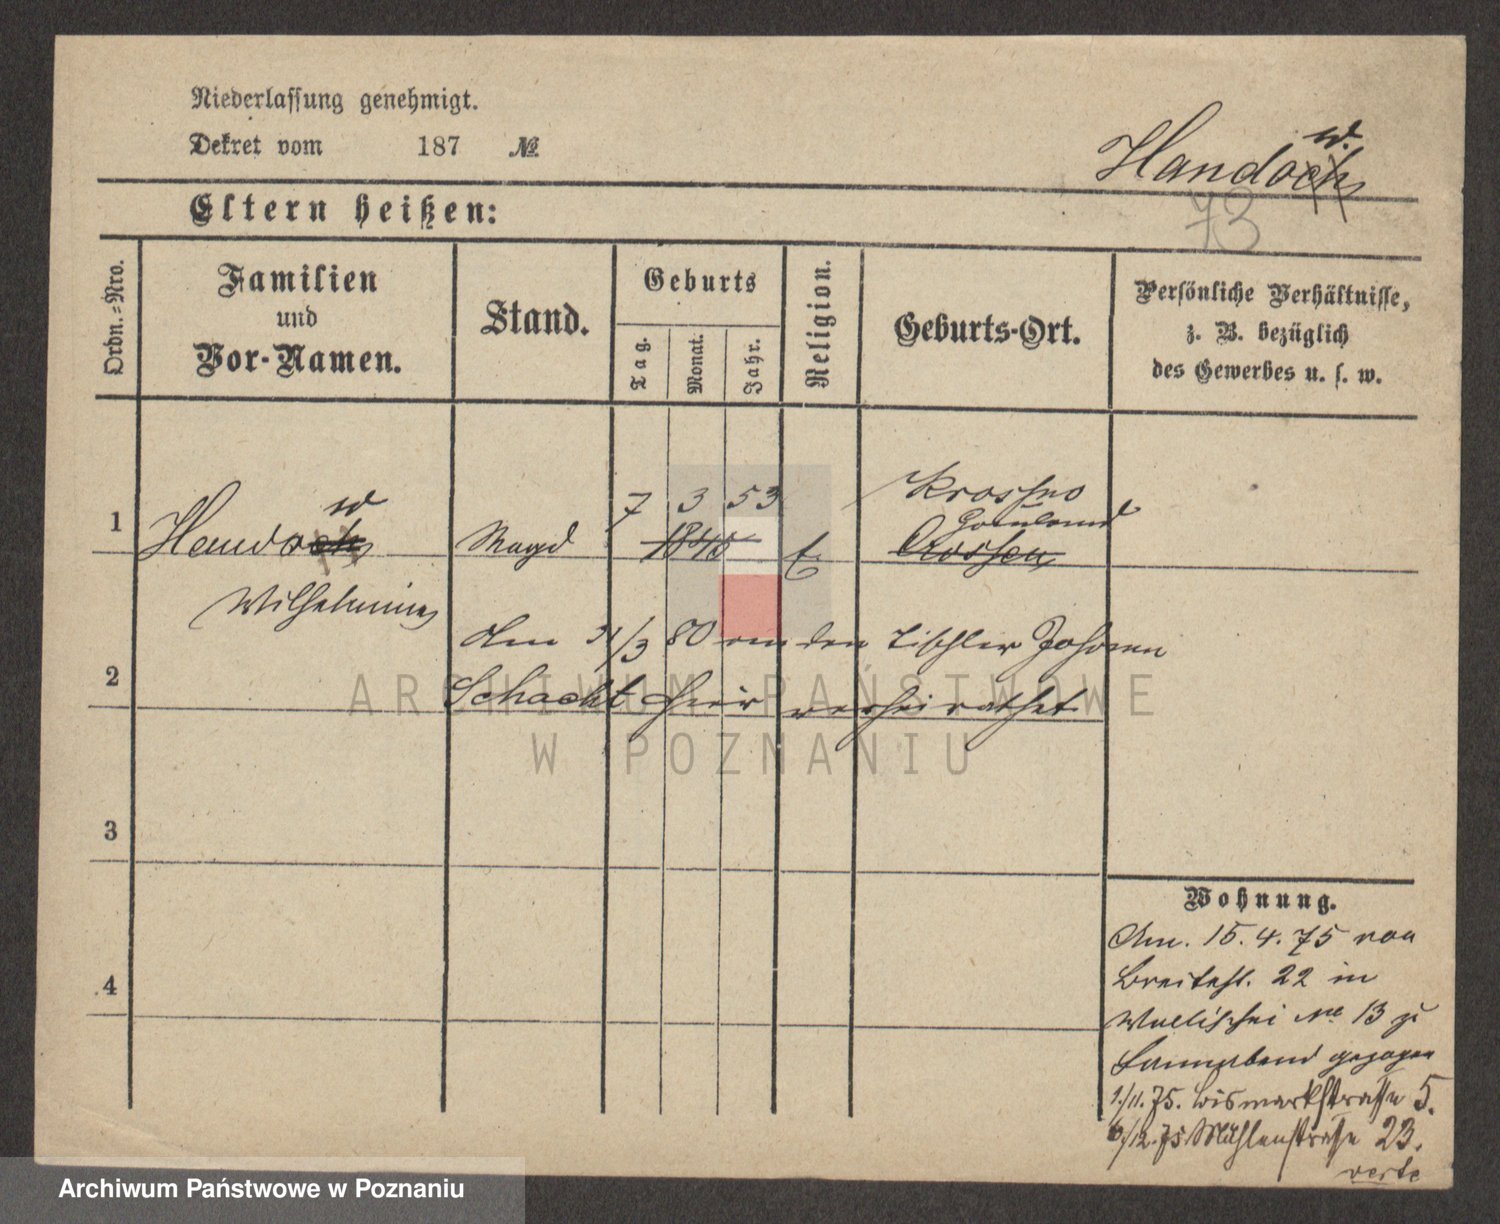 Niederlassung genehmigt.
Dekret vom 187 №
Handoch w.
73
Eltern heißen:
Ordn.-Nro.
Familien
und
Vor-Namen.
Stand.
Geburts
Tag.
Monat.
Jahr.
Religion.
Geburts-Ort.
Persönliche Verhältnisse,
z. B. bezüglich
des Gewerbes u. s. w.
1
Handoch w
Wilhelmine
Magd
7 3 53
1845
Krossno
Hauland
Crossen
Am 31/3 80 an den Tischler Johann
Schacht hier verheirathet
2
3
4
Wohnung.
Am. 15.4.75 von
Breitestr. 22 in
Wallischei № 13 zu
gezogen
1./11.75. Bismarkstrasse 5.
6/12.75 Mühlenstrasse 23.
verte
ARCHIWUM PAŃSTWOWE
W POZNANIU
Archiwum Państwowe w Poznaniu